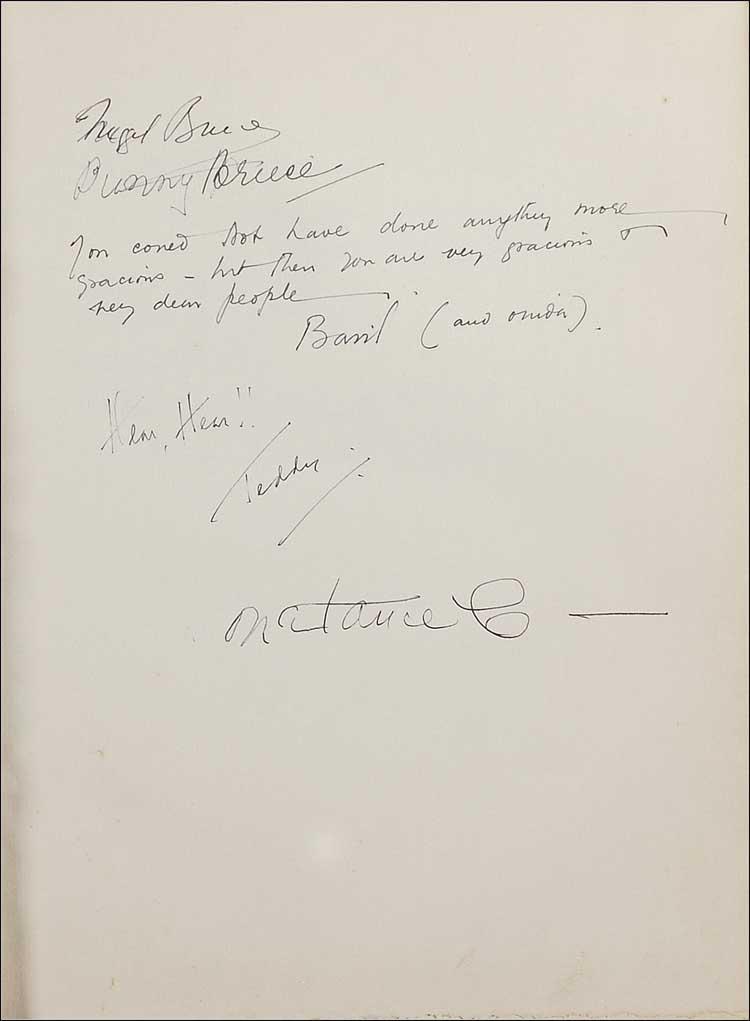 Nigel Bruce
Bunny Bruce
You could not have done anything more
gracious – but then you are very gracious &
very dear people
Basil (and Ouida).
Hear, Hear!!
Teddy.